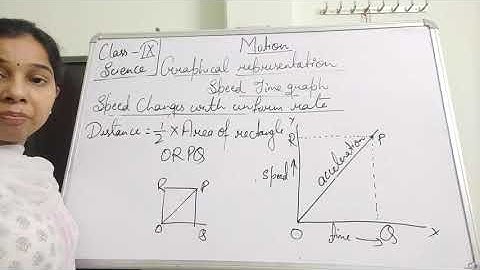 Class - IX
Motion
Science
Graphical representation
Speed Time graph
Speed Changes with uniform rate
Distance = 1/2 × Area of rectangle
ORPQ
R P
O Q
Y
R P
Speed ↑
acceleration
O time → Q X